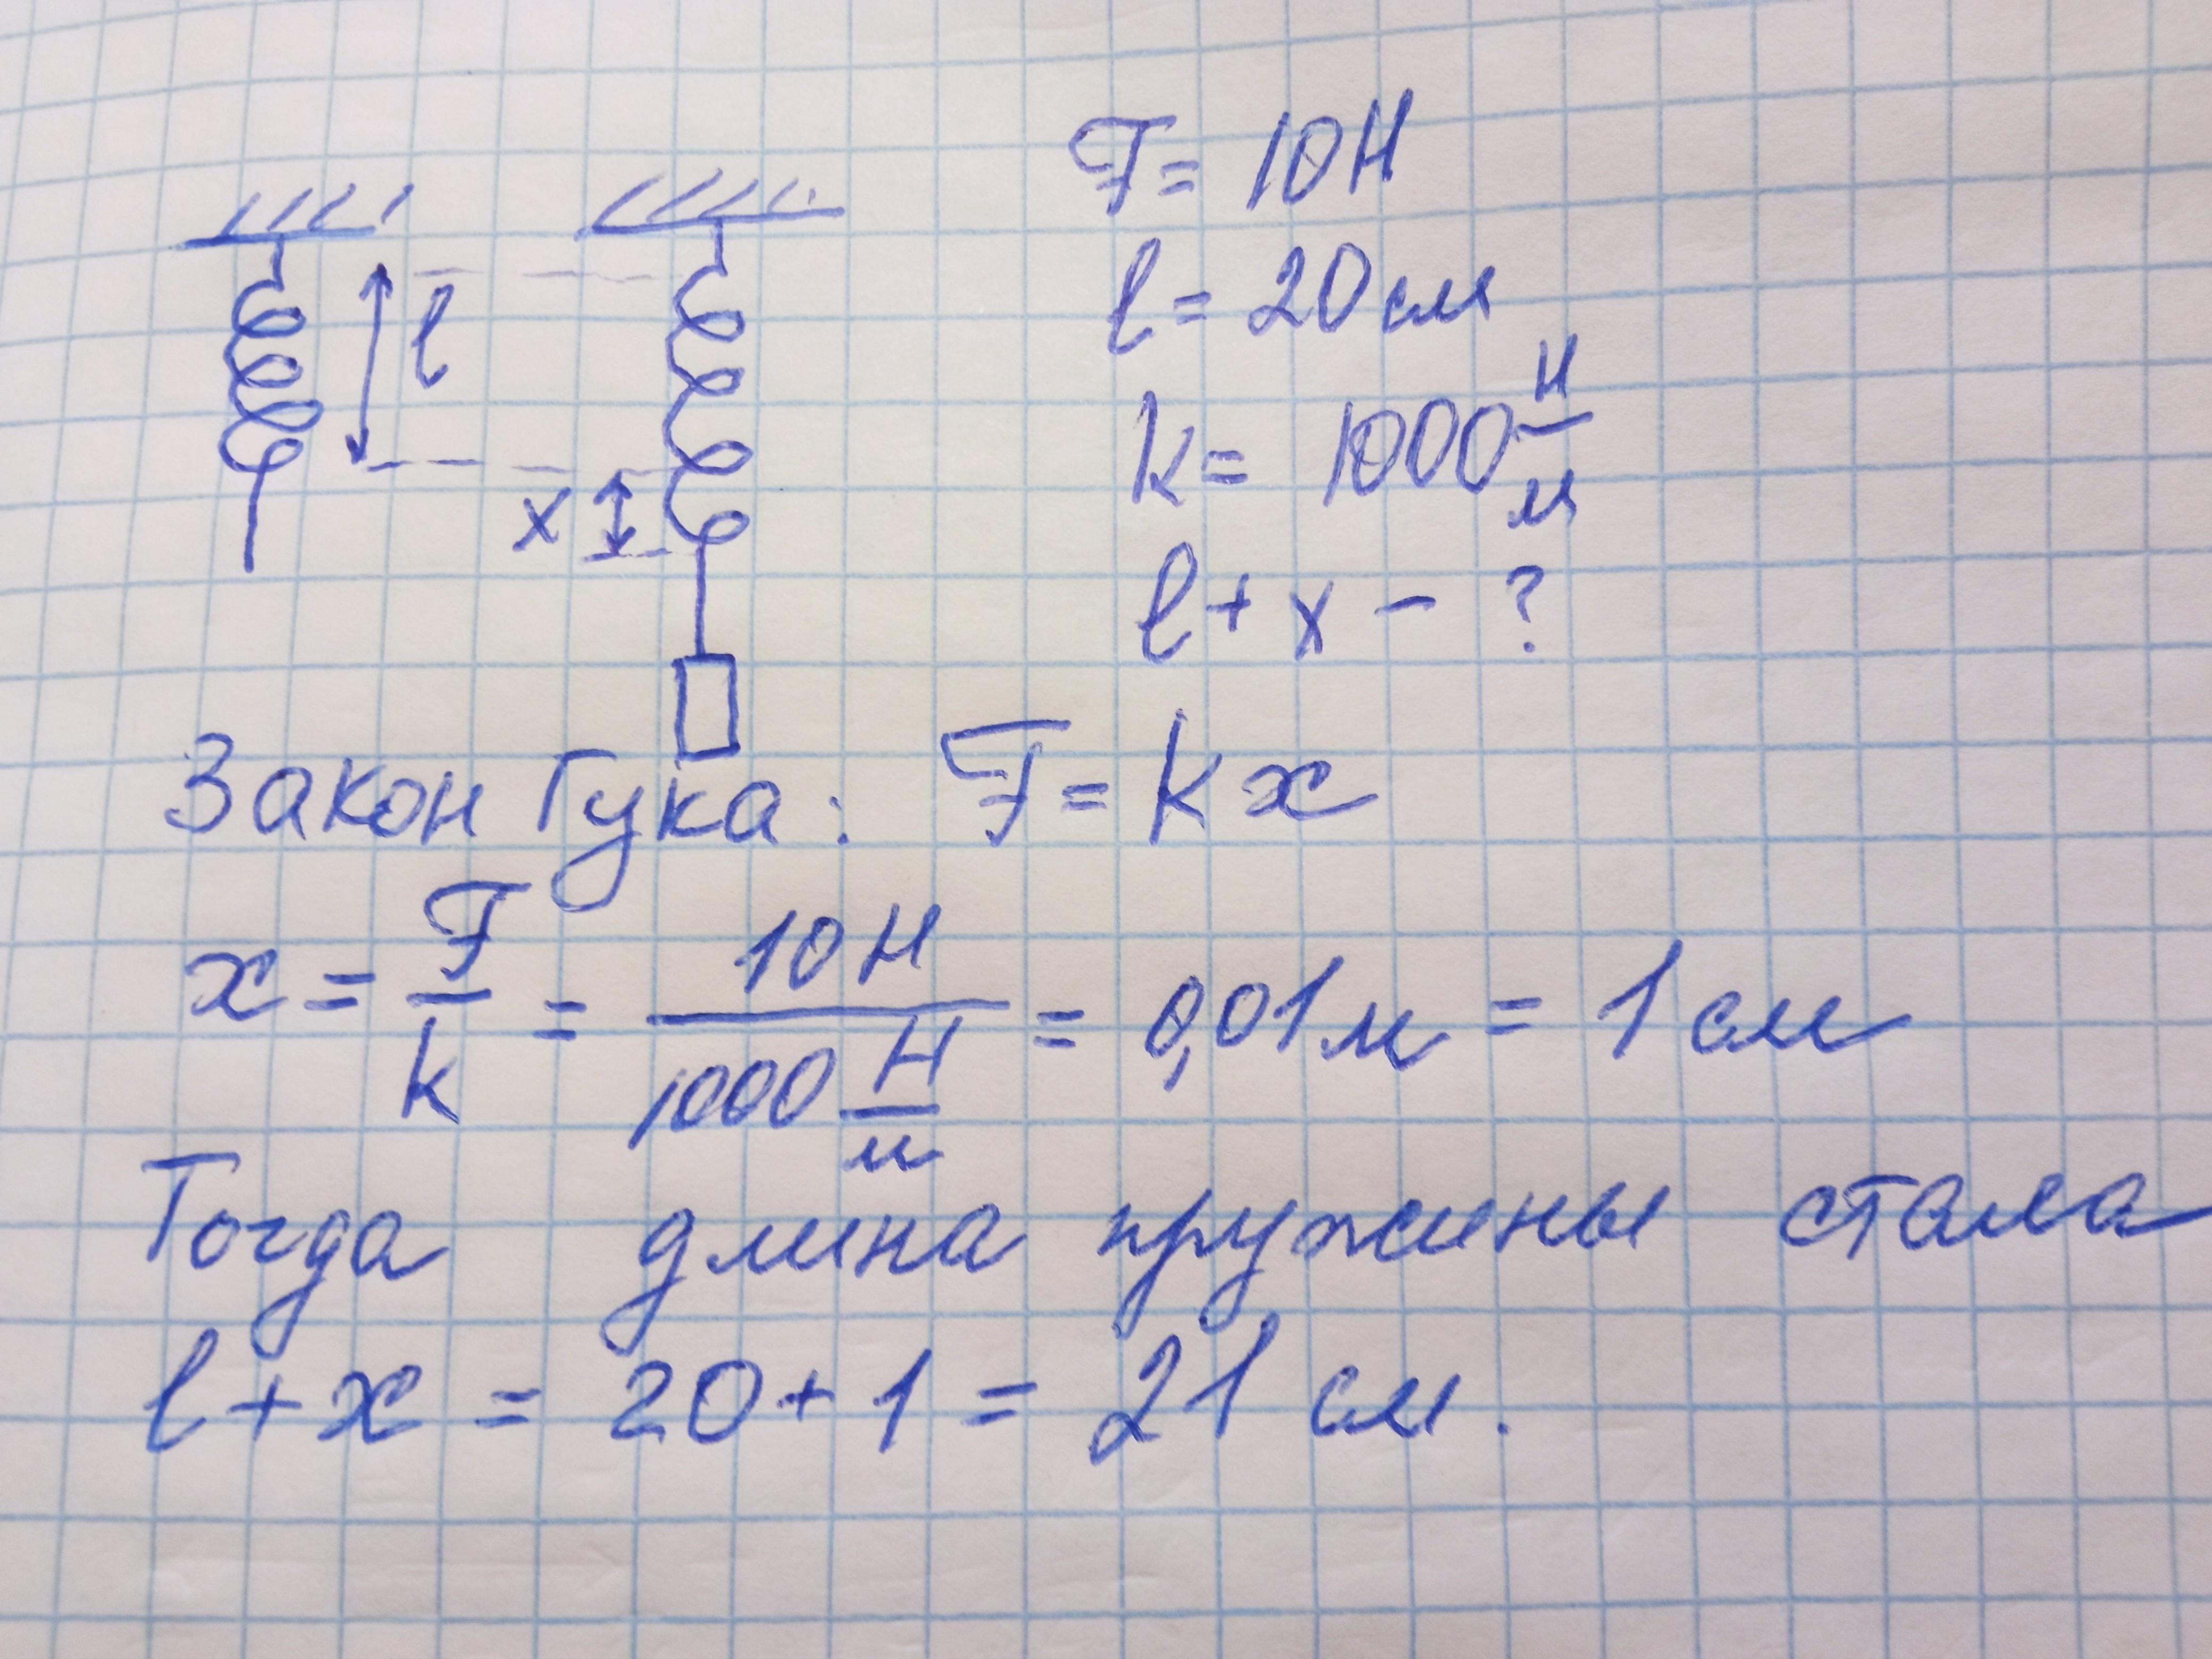 F = 10 Н
l = 20 см
k = 1000 Н/м
l + x - ?
l
x
Закон Гука: F = kx
x = F/k = 10 Н / 1000 Н/м = 0,01 м = 1 см
Тогда длина пружины стала
l + x = 20 + 1 = 21 см.